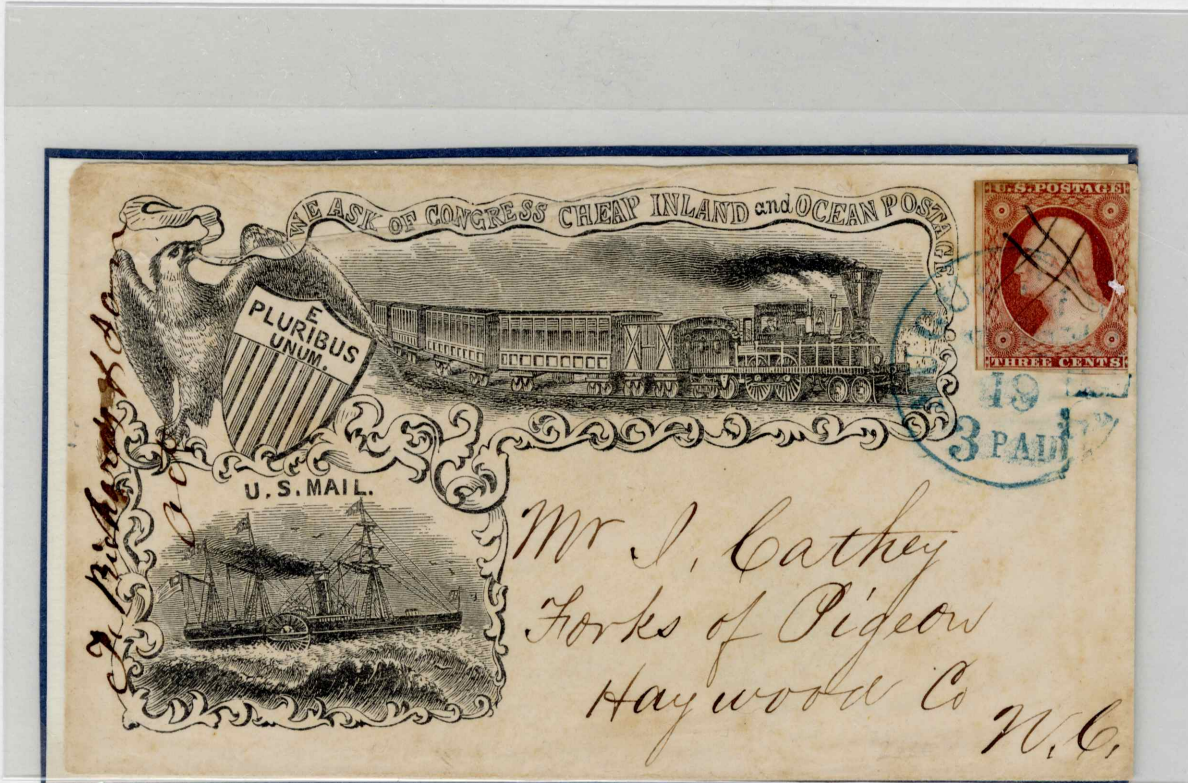 WE ASK OF CONGRESS CHEAP INLAND and OCEAN POSTAGE
E
PLURIBUS
UNUM.
U.S. MAIL.
U.S. POSTAGE
THREE CENTS
19
3 PAID
Mr J. Cathey
Forks of Pigeon
Haywood Co
N.C.